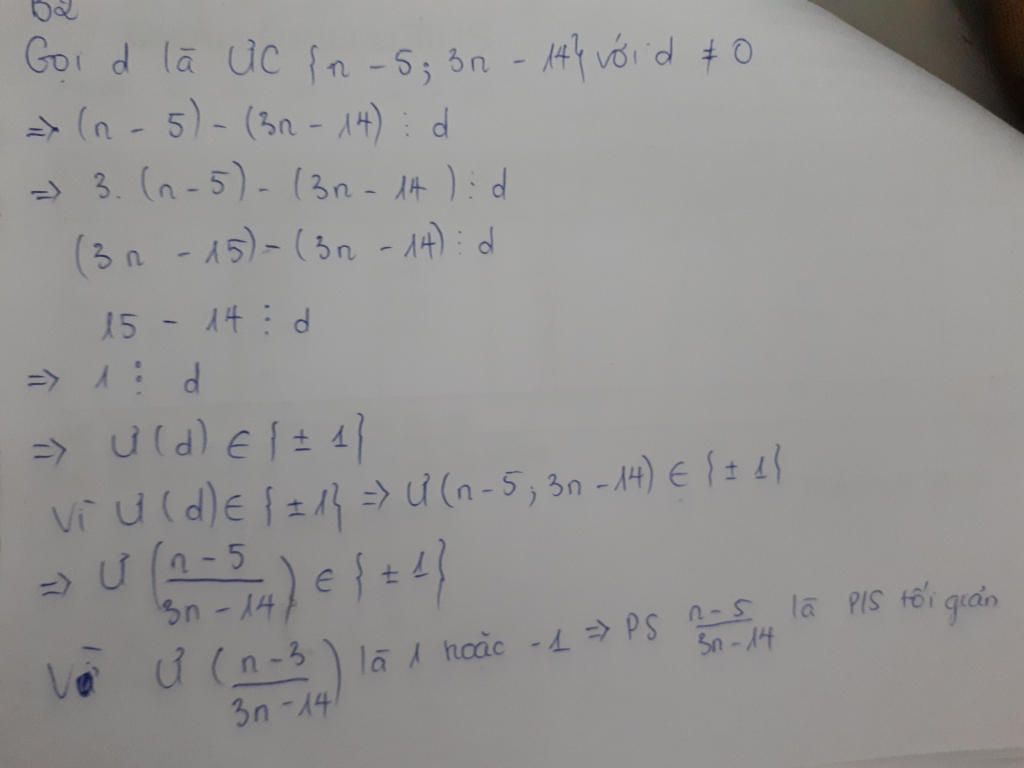 B2
Gọi d là ƯC {n - 5; 3n - 14} với d ≠ 0
=> (n - 5) - (3n - 14) ⋮ d
=> 3. (n - 5) - (3n - 14) ⋮ d
(3n - 15) - (3n - 14) ⋮ d
15 - 14 ⋮ d
=> 1 ⋮ d
=> Ư(d) ∈ {± 1}
Vì Ư(d) ∈ {±1} => Ư(n - 5; 3n - 14) ∈ {± 1}
=> Ư (n - 5 / 3n - 14) ∈ {± 1}
Vì Ư (n - 3 / 3n - 14) là 1 hoặc -1 => PS n - 5 / 3n - 14 là PS tối giản